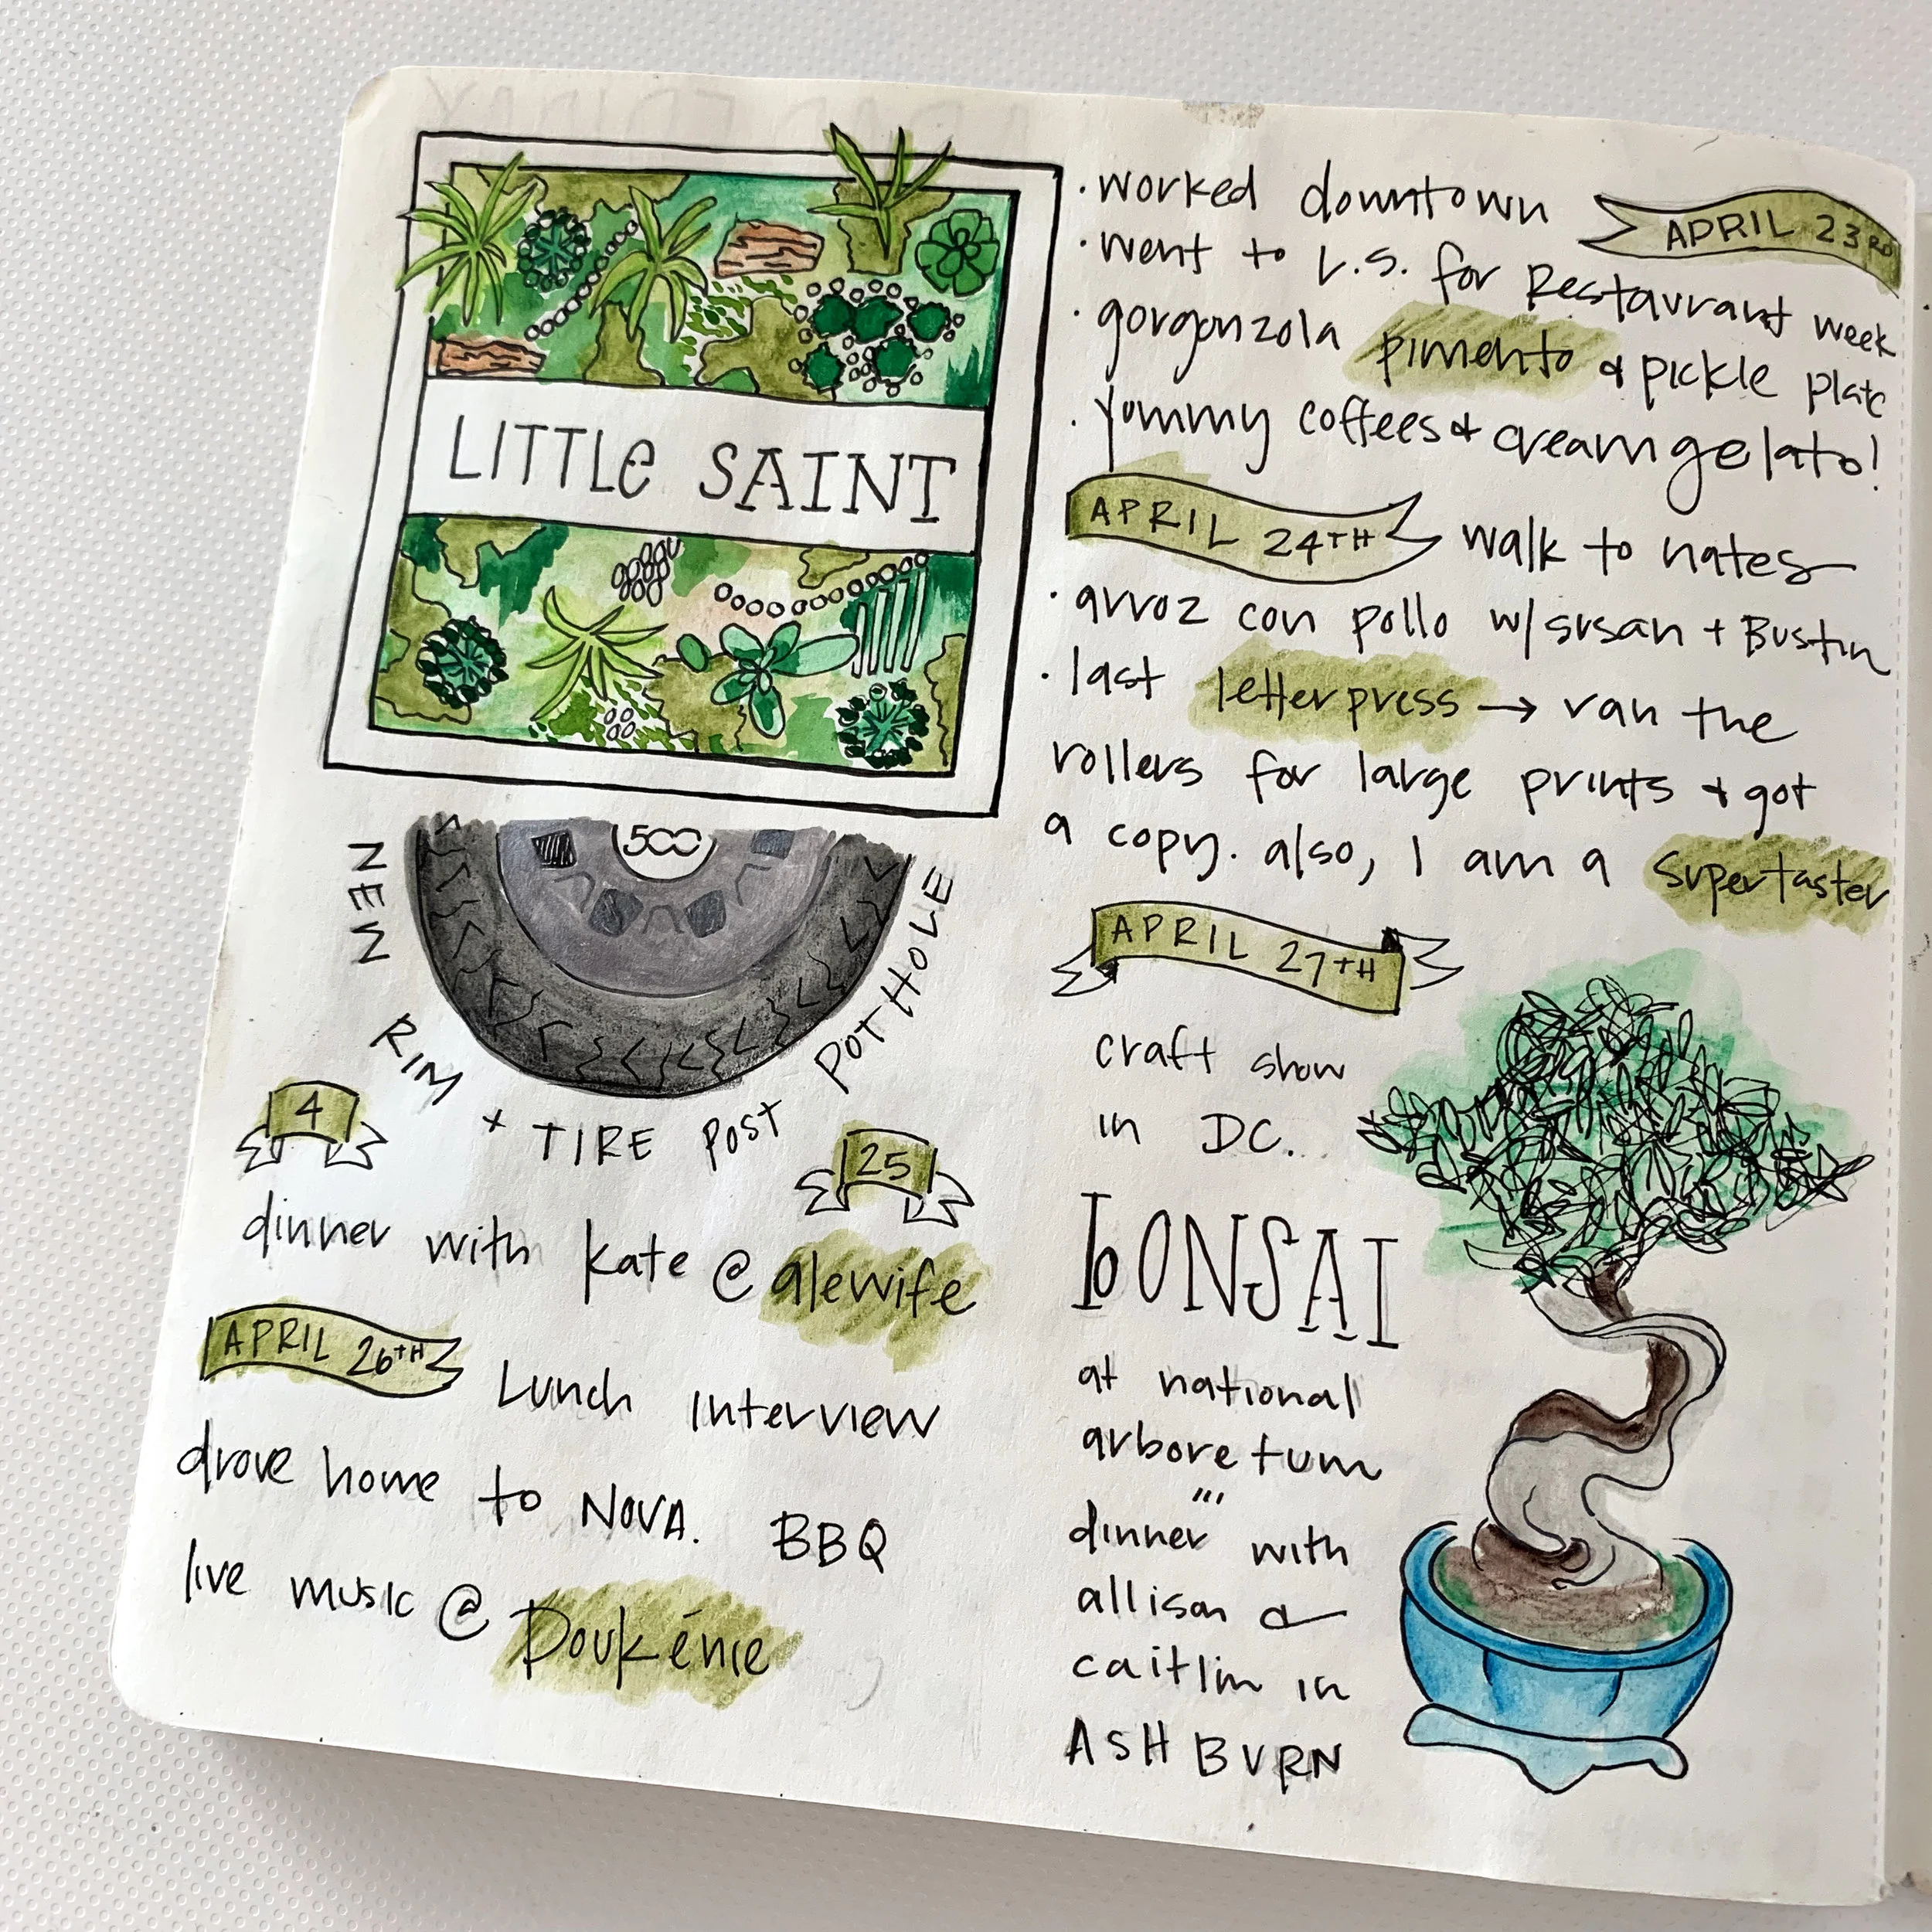 LITTLe SAINT
· worked downtown
APRIL 23RD
· went to L.S. for Restaurant week
· gorgonzola pimento & pickle plate
· yummy coffees & cream gelato!
APRIL 24TH
walk to nates
· arroz con pollo w/ susan + Bustin
· last letterpress → ran the
rollers for large prints & got
a copy. also, I am a supertaster
500
NEW RIM + TIRE POST POTHOLE
4
25
dinner with kate @ alewife
APRIL 26TH
Lunch Interview
drove home to NOVA. BBQ
live music @ Doukénie
APRIL 27TH
craft show
in DC.
bONSAI
at national
arboretum
dinner with
allison &
caitlin in
ASHBURN